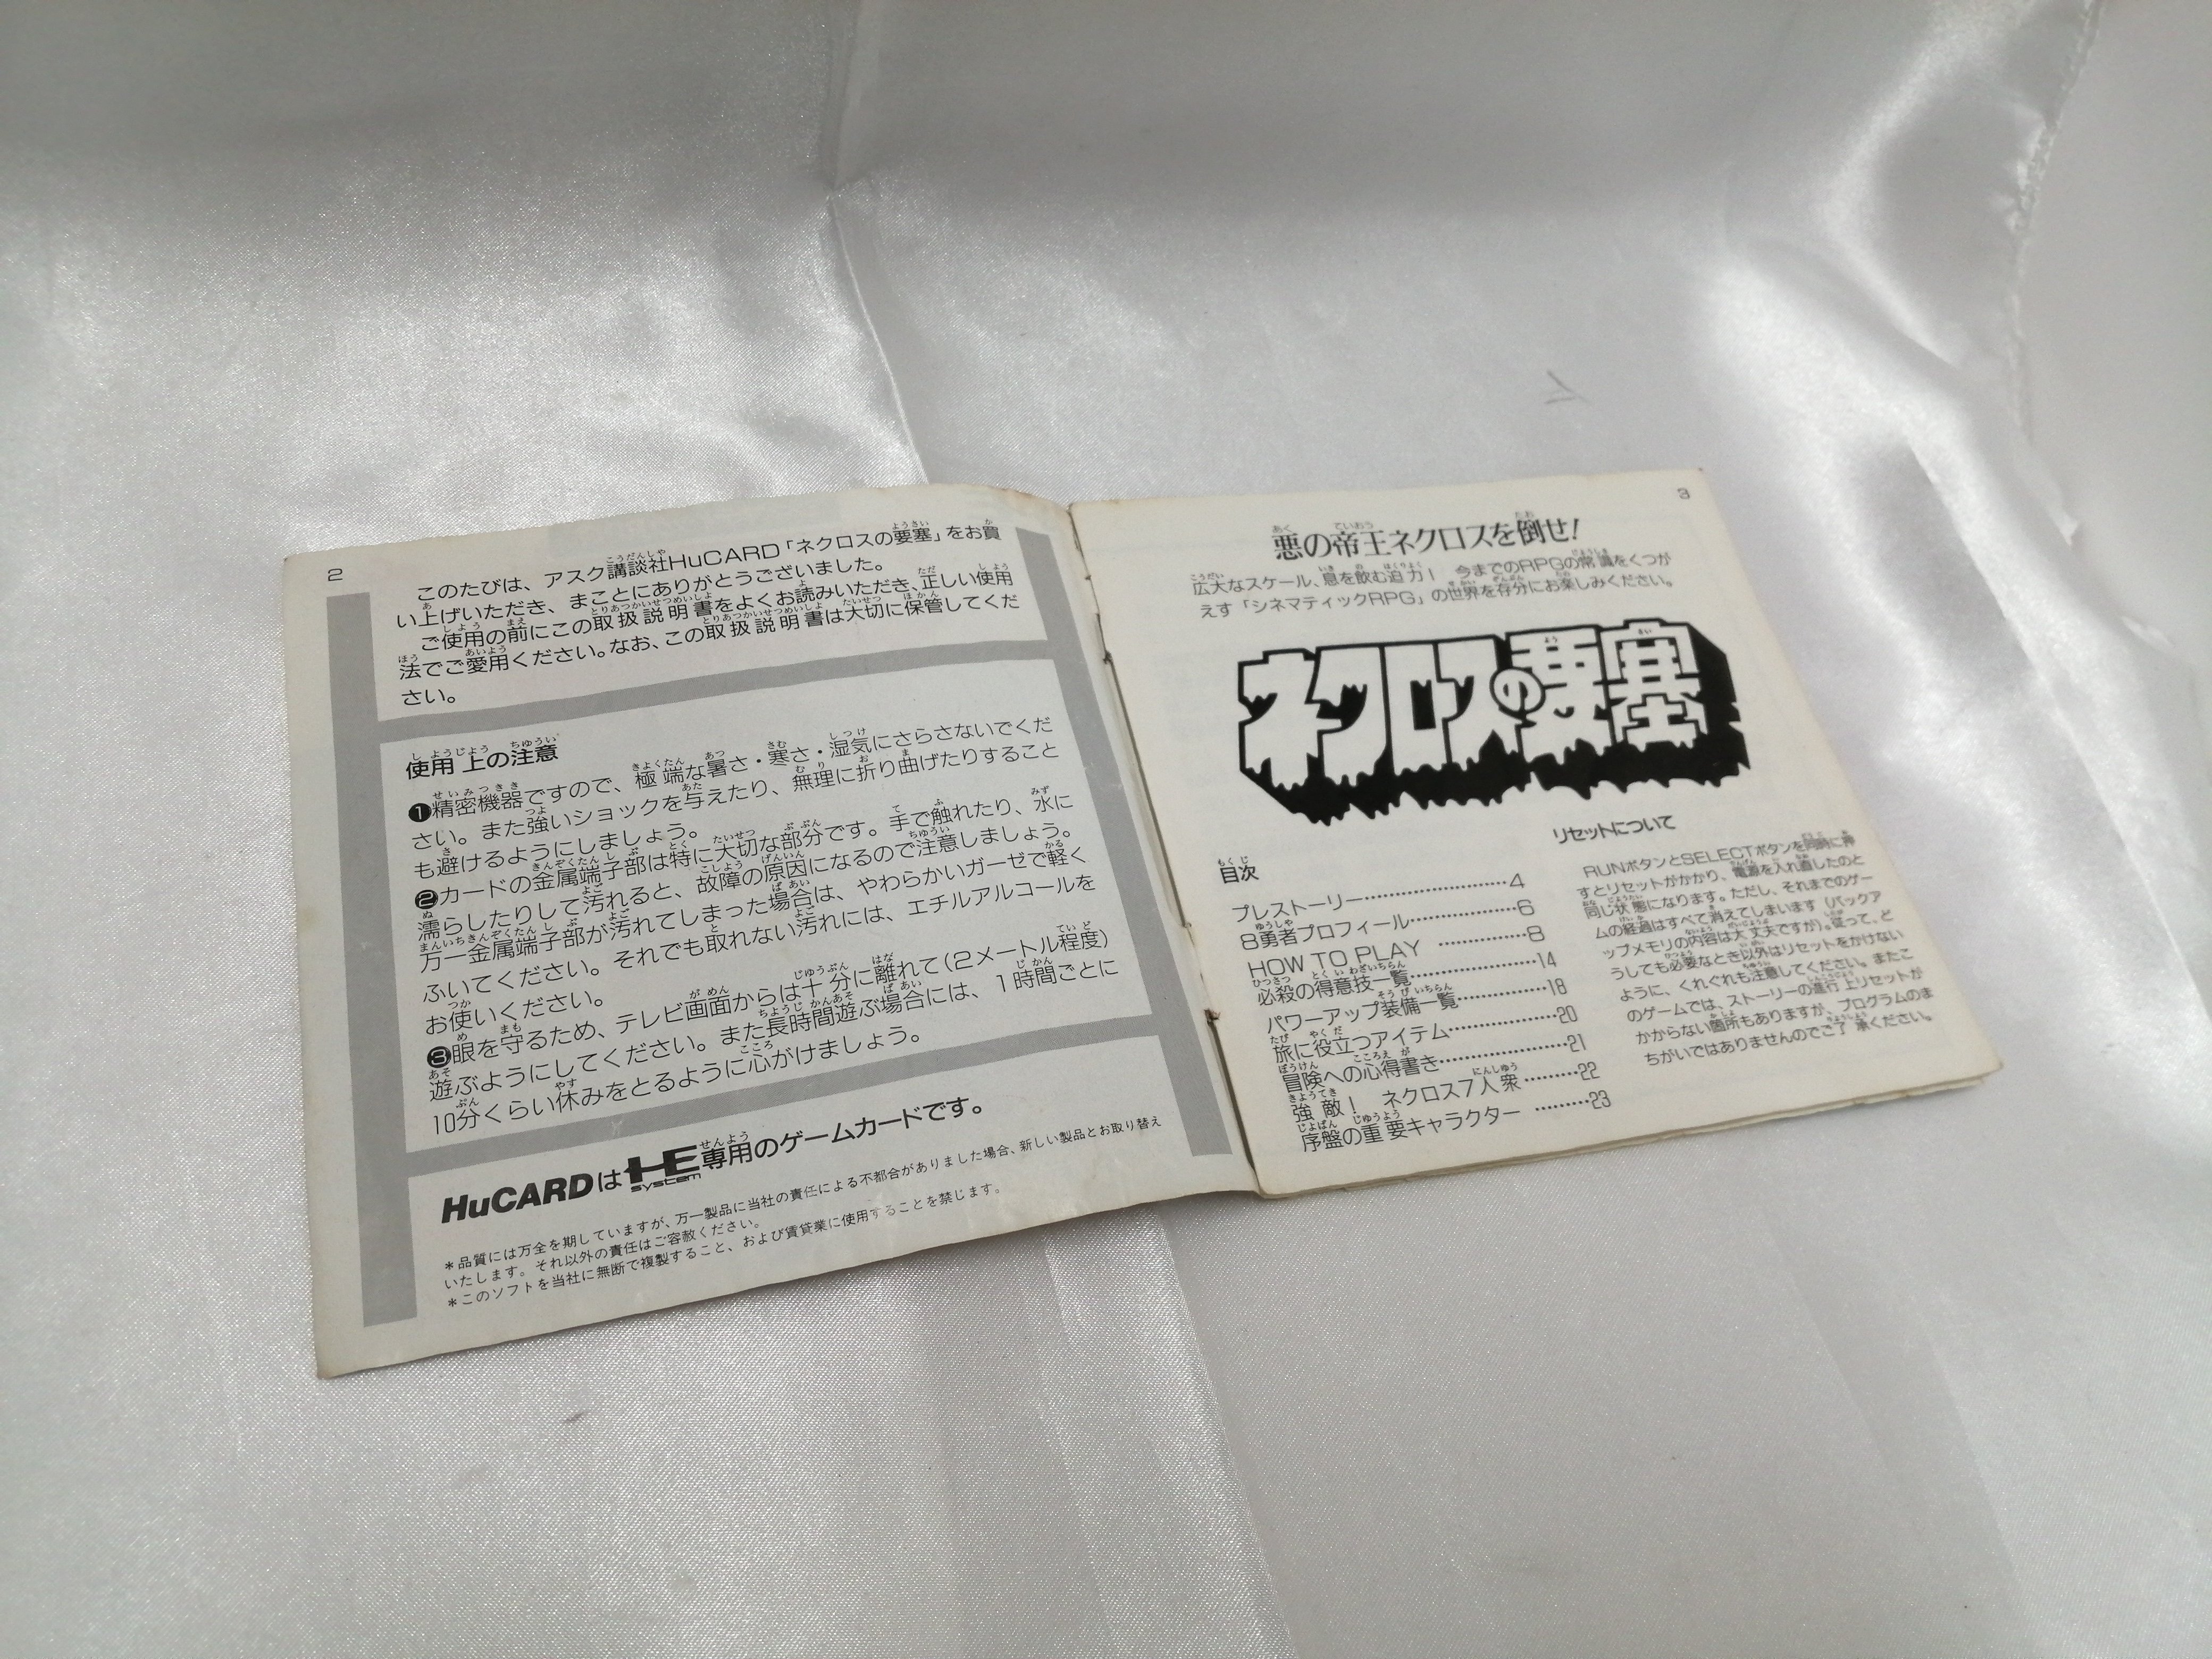 2
このたびは、アスク講談社HuCARD「ネクロスの要塞」をお買
い上げいただき、まことにありがとうございました。
ご使用の前にこの取扱説明書をよくお読みいただき、正しい使用
法でご愛用ください。なお、この取扱説明書は大切に保管してくだ
さい。
使用上の注意
❶精密機器ですので、極端な暑さ・寒さ・湿気にさらさないでくだ
さい。また強いショックを与えたり、無理に折り曲げたりすること
も避けるようにしましょう。
❷カードの金属端子部は特に大切な部分です。手で触れたり、水に
濡らしたりして汚れると、故障の原因になるので注意しましょう。
万一金属端子部が汚れてしまった場合は、やわらかいガーゼで軽く
ふいてください。それでも取れない汚れには、エチルアルコールを
お使いください。
❸眼を守るため、テレビ画面からは十分に離れて(2メートル程度)
遊ぶようにしてください。また長時間遊ぶ場合には、1時間ごとに
10分くらい休みをとるように心がけましょう。
HuCARDはHE system専用のゲームカードです。
＊品質には万全を期していますが、万一製品に当社の責任による不都合がありました場合、新しい製品とお取り替え
いたします。それ以外の責任はご容赦ください。
＊このソフトを当社に無断で複製すること、および賃貸業に使用することを禁じます。
3
悪の帝王ネクロスを倒せ!
広大なスケール、息を飲む迫力! 今までのRPGの常識をくつが
えす「シネマティックRPG」の世界を存分にお楽しみください。
ネクロスの要塞
目次
プレストーリー……………………4
8勇者プロフィール………………6
HOW TO PLAY …………8
必殺の得意技一覧………………14
パワーアップ装備一覧…………18
旅に役立つアイテム……………20
冒険への心得書き………………21
強敵! ネクロス7人衆………22
序盤の重要キャラクター ………23
リセットについて
RUNボタンとSELECTボタンを同時に押
すとリセットがかかり、電源を入れ直したのと
同じ状態になります。ただし、それまでのゲー
ムの経過はすべて消えてしまいます(バックア
ップメモリの内容は大丈夫ですが)。従って、ど
うしても必要なとき以外はリセットをかけない
ように、くれぐれも注意してください。またこ
のゲームでは、ストーリーの進行上リセットが
かからない箇所もありますが、プログラムのま
ちがいではありませんのでご了承ください。